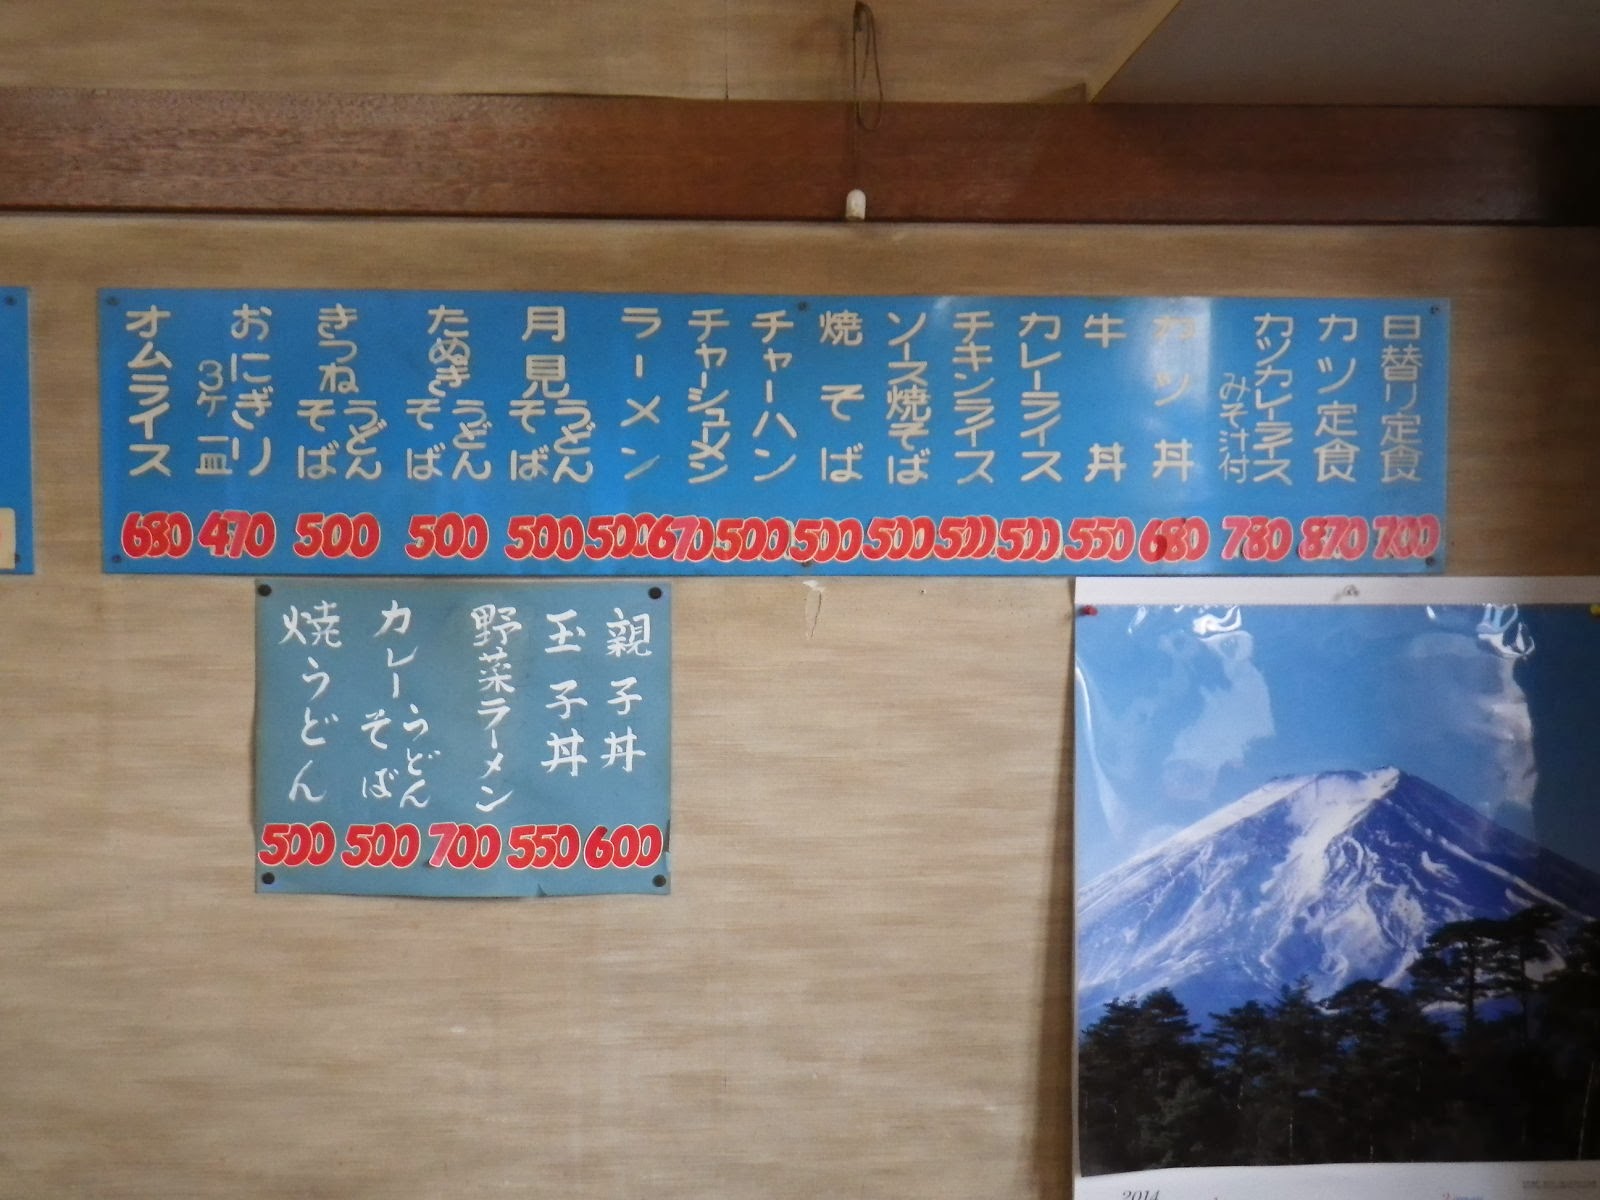 日替り定食
700
カツ定食
870
カツカレーライス
みそ汁付
780
カツ丼
680
牛丼
550
カレーライス
500
チキンライス
500
ソース焼そば
500
焼そば
500
チャーハン
500
チャーシューメン
670
ラーメン
500
月見
うどん
そば
500
たぬき
うどん
そば
500
きつね
うどん
そば
500
おにぎり
3ヶ一皿
470
オムライス
680
親子丼
600
玉子丼
550
野菜ラーメン
700
カレー
うどん
そば
500
焼うどん
500
2014